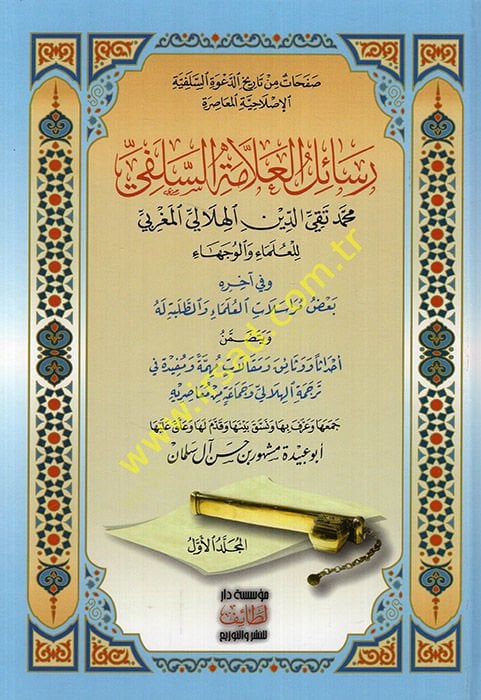 صَفَحَاتٌ مِنْ تَارِيخِ الدَّعْوَةِ السَّلَفِيَّةِ
الإِصْلَاحِيَّةِ المُعَاصِرَةِ
رَسَائِلُ العَلَّامَةِ السَّلَفِيِّ
مُحَمَّد تَقِيِّ الدِّينِ الهِلَالِيِّ المَغْرِبِيِّ
لِلْعُلَمَاءِ وَالوُجَهَاءِ
وَفِي آخِرِهِ
بَعْضُ مُرَاسَلَاتِ العُلَمَاءِ وَالطَّلَبَةِ لَهُ
وَيَتَضَمَّنُ
أَحْدَاثًا وَوَثَائِقَ وَمَقَالَاتٍ مُهِمَّةً وَمُفِيدَةً فِي
تَرْجَمَةِ الهِلَالِيِّ وَجَمَاعَةٍ مِنْ مُعَاصِرِيهِ
جَمَعَهَا وَعَرَّفَ بِهَا وَنَسَّقَ بَيْنَهَا وَقَدَّمَ لَهَا وَعَلَّقَ عَلَيْهَا
أبو عبيدة مشهور بن حسن آل سلمان
المُجَلَّدُ الأَوَّلُ
مؤسسة دار
لطائف
للنشر والتوزيع
www.irsad.com.tr